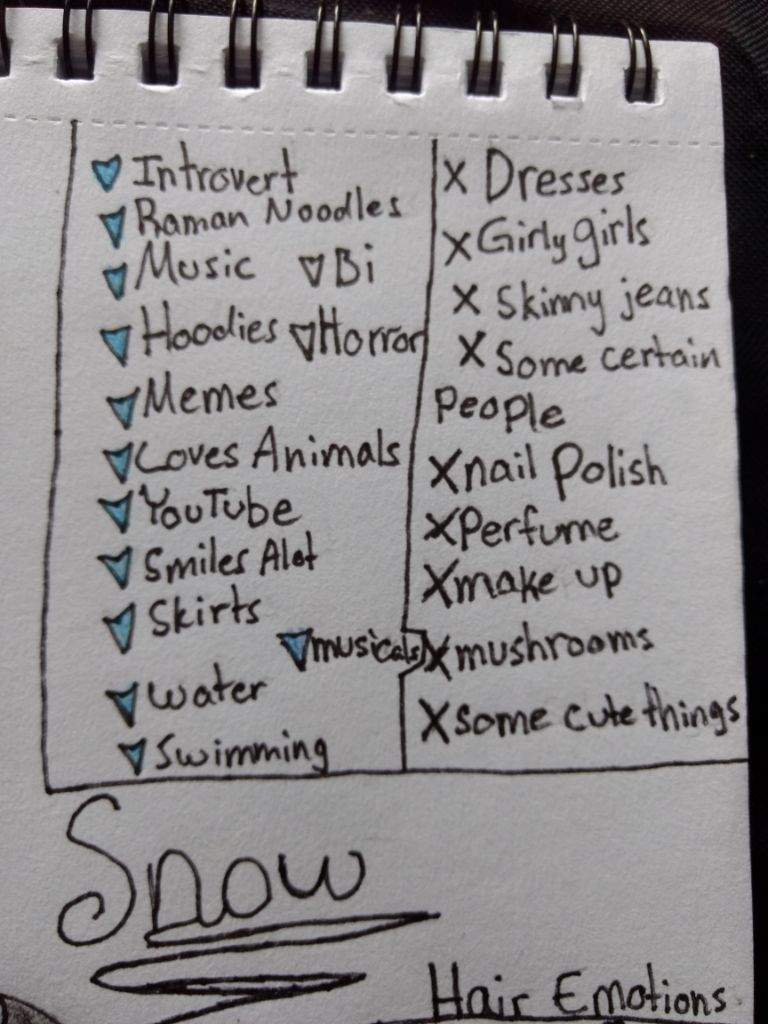 Introvert
Raman Noodles
Music Bi
Hoodies Horror
Memes
Loves Animals
YouTube
Smiles Alot
Skirts
musicals
water
Swimming
X Dresses
X Girly girls
X Skinny jeans
X Some certain
People
X nail Polish
X Perfume
X make up
X mushrooms
X some cute things
Snow
Hair Emotions